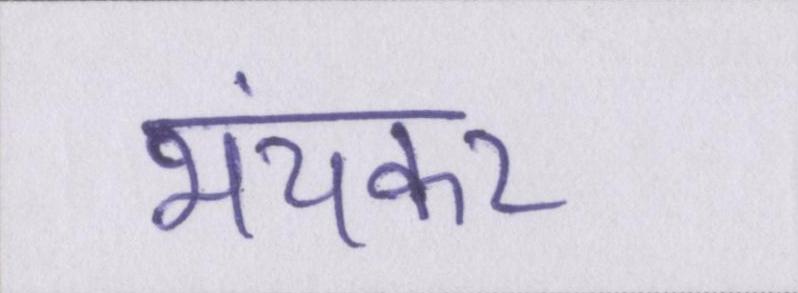 भंयकर